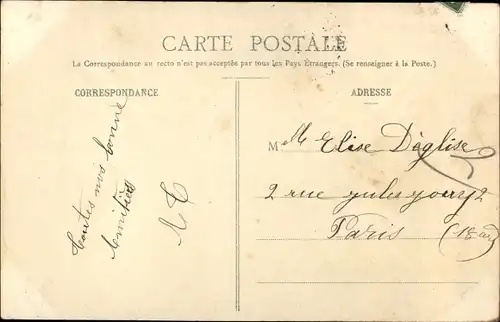 CARTE POSTALE
La Correspondance au recto n'est pas acceptée par tous les Pays Étrangers. (Se renseigner à la Poste.)
CORRESPONDANCE
toutes nos bonne
Amitiés
ADRESSE
M elle Elise Dàglise
2 rue jules jouy 2
Paris (18